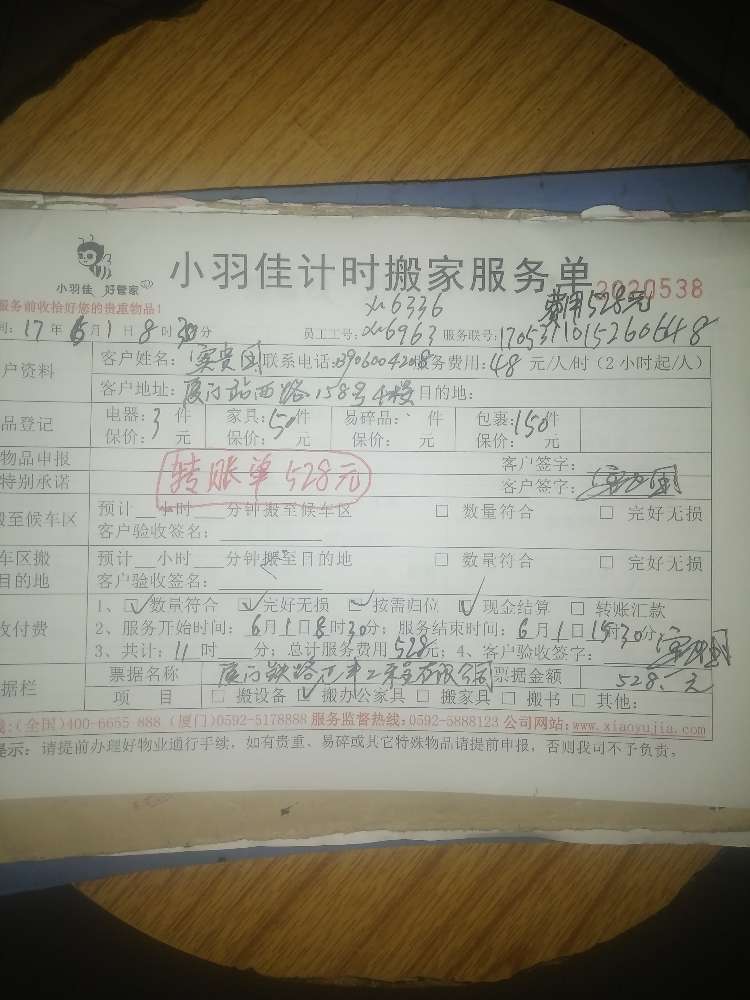 小羽佳 好管家
小羽佳计时搬家服务单
2020538
服务前收拾好您的贵重物品!
xm6336
费用528元
间: 17年6月1日8时30分 员工工号: xm6963 服务联号: 1705311015260648
户资料
客户姓名: 贵国 联系电话: 服务费用: 48 元/人/时 (2小时起/人)
客户地址: 厦门站西路158号4楼 目的地:
品登记
电器: 3 件 家具: 50 件 易碎品: 件 包裹: 150 件
保价: 元 保价: 元 保价: 元 保价: 元
物品申报 客户签字:
特别承诺 客户签字:
转账单528元
搬至候车区
预计 小时 分钟搬至候车区 □ 数量符合 □ 完好无损
客户验收签名:
车区搬
目的地
预计 小时 分钟搬至目的地 □ 数量符合 □ 完好无损
客户验收签名:
收付费
1、☑数量符合 ☑完好无损 ☑按需归位 ☑现金结算 □ 转账汇款
2、服务开始时间: 6月1日8时30分; 服务结束时间: 6月1日15时30分;
3、共计: 11 时 分; 总计服务费用 528元; 4、客户验收签字:
据栏
票据名称 厦门铁路工程有限公司 票据金额 528.元
项 目 □ 搬设备 ☑ 搬办公家具 □ 搬家具 □ 搬书 □ 其他:
线:(全国)400-6655 888 (厦门)0592-5178888 服务监督热线:0592-5888123 公司网站:www.xiaoyujia.com
提示: 请提前办理好物业通行手续,如有贵重、易碎或其它特殊物品请提前申报,否则我司不予负责。